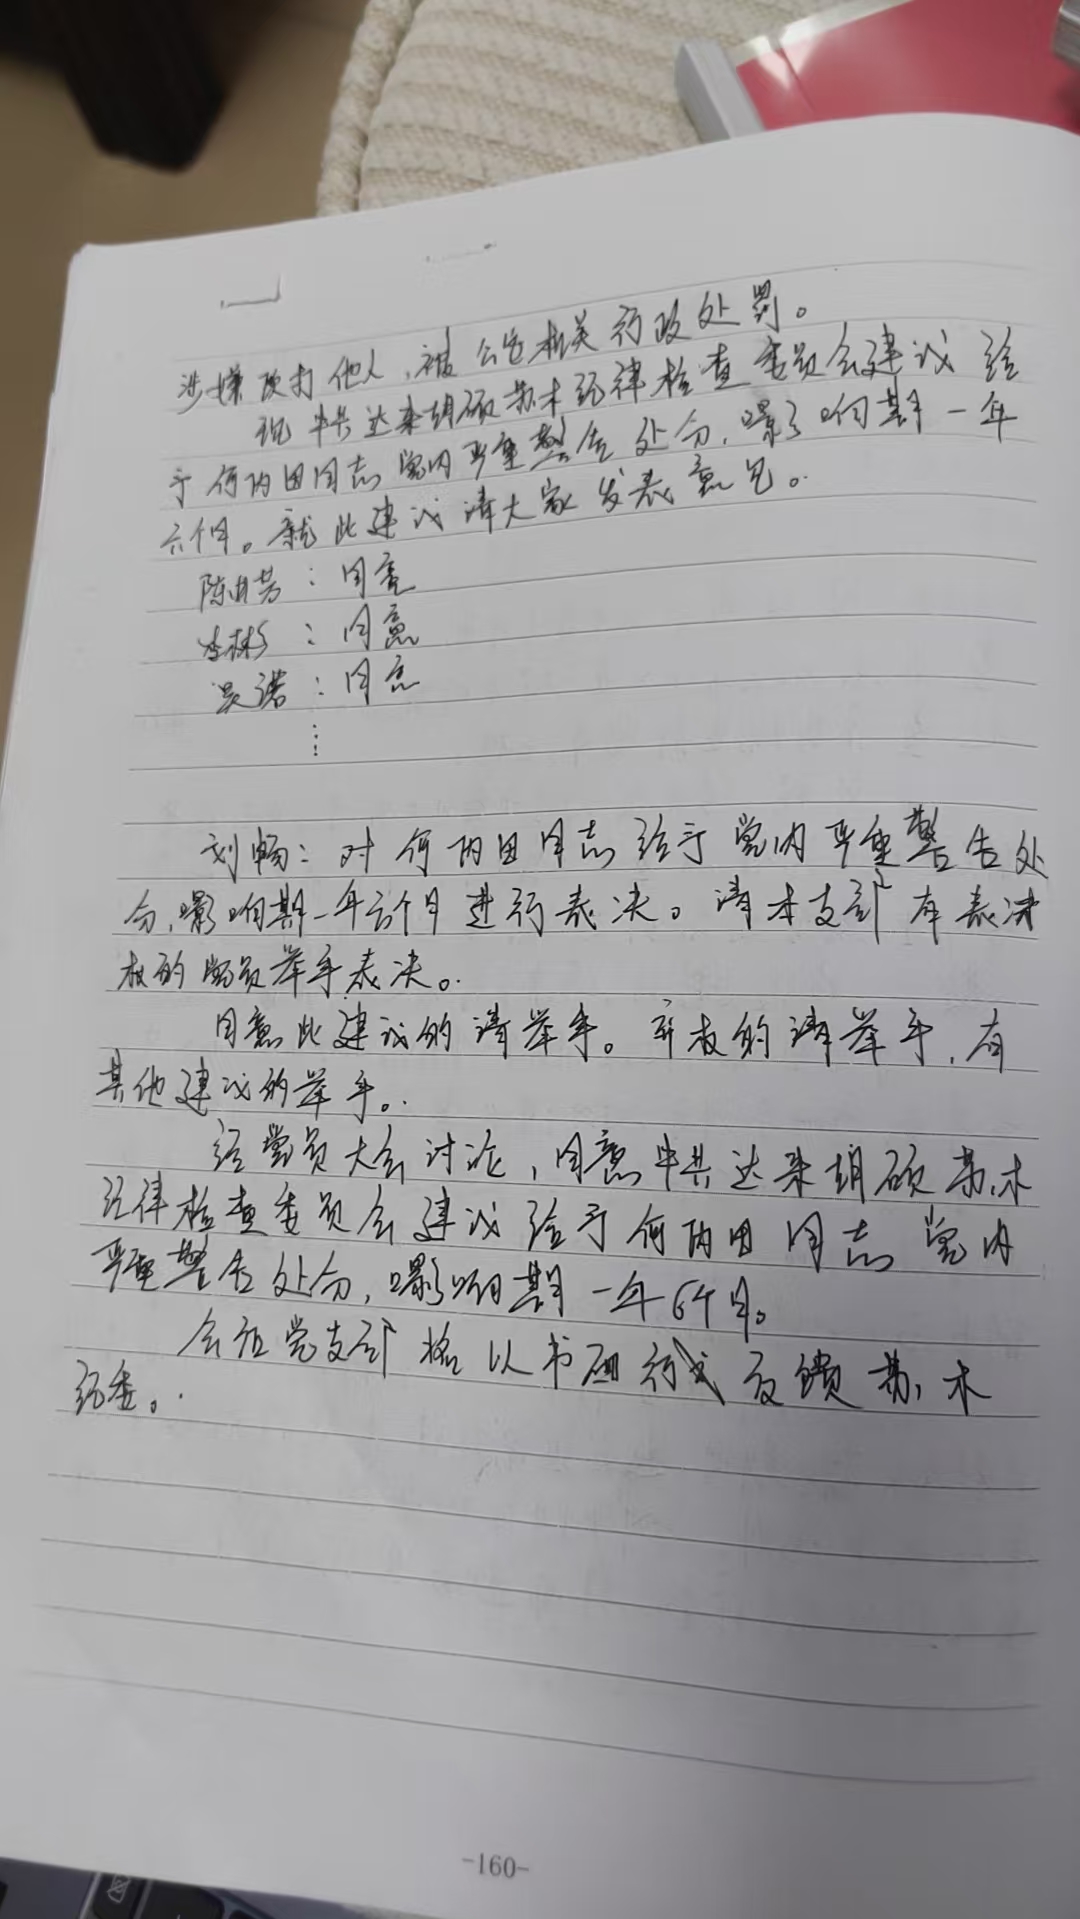 涉嫌殴打他人，被公安机关行政处罚。
现中共达来胡硕苏木纪律检查委员会建议给
予何内田同志党内严重警告处分，影响期一年
六个月。就此建议请大家发表意见。
陈自芳：同意
李彬：同意
吴诺：同意
⋮
刘畅：对何内田同志给予党内严重警告处
分，影响期一年六个月进行表决。请本支部有表决
权的党员举手表决。
同意此建议的请举手。弃权的请举手，有
其他建议的举手。
经党员大会讨论，同意中共达来胡硕苏木
纪律检查委员会建议给予何内田同志党内
严重警告处分，影响期一年6个月。
会后党支部将以书面形式反馈苏木
纪委。
-160-